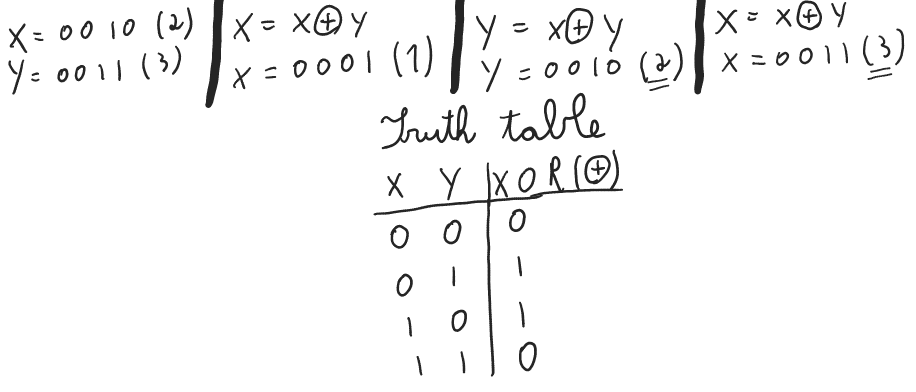 X = 0010 (2)
Y = 0011 (3)
X = X⊕Y
X = 0001 (1)
Y = X⊕Y
Y = 0010 (2)
X = X⊕Y
X = 0011 (3)
Truth table
X Y XOR(⊕)
0 0 0
0 1 1
1 0 1
1 1 0